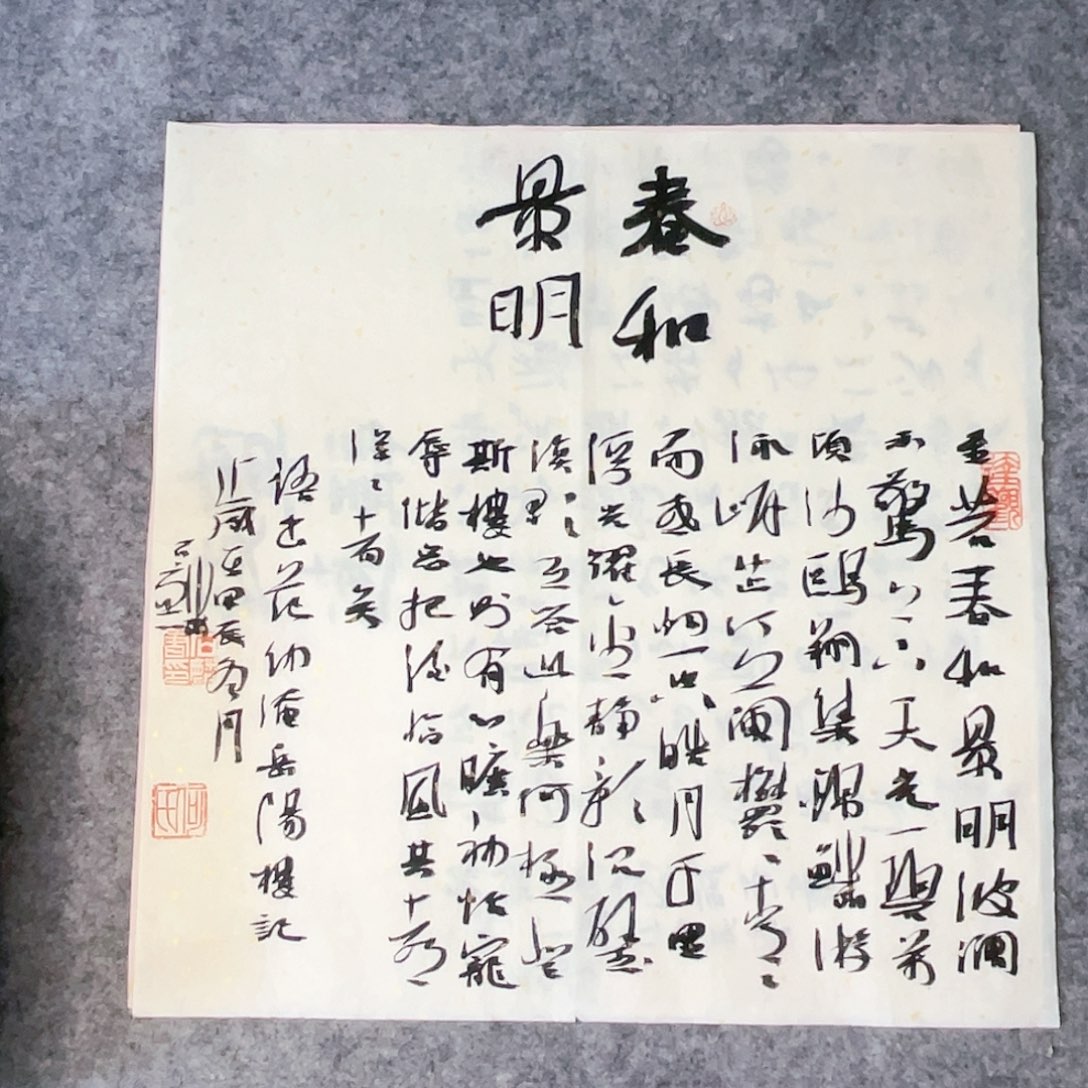 春和
景明
至若春和景明波瀾
不驚上下天光一碧萬
頃沙鷗翔集錦鱗游
泳岸芷汀蘭鬱〻青〻
而或長烟一空皓月千里
浮光耀金静影沉璧
漁歌互答此樂何極登
斯樓也則有心曠神怡寵
辱偕忘把酒臨風其喜
洋〻者矣
語出范仲淹岳陽樓記
歲在甲辰月